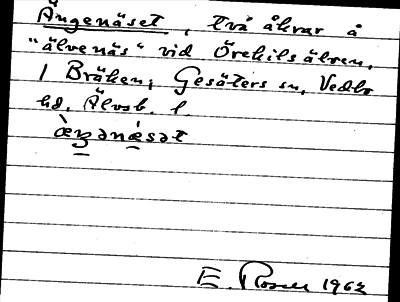 Ängenäset, två åkrar å
"älvenäs" vid Örekilsälven,
/ Bräken; Gesäters sn, Vedbo
hd. Älvsb. l.
æ̀ŋənæ̀sət
E. Rosen 1962